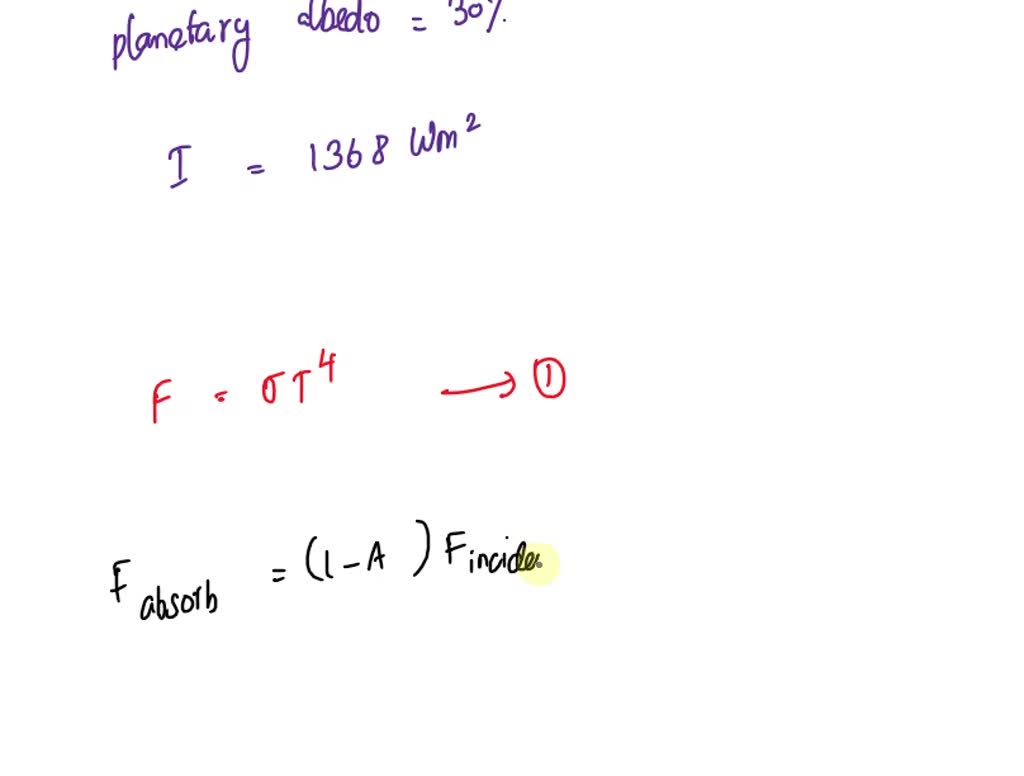 planetary albedo = 30%.
I = 1368 Wm²
F = σT⁴ → ①
F absorb = (1-A) F incide